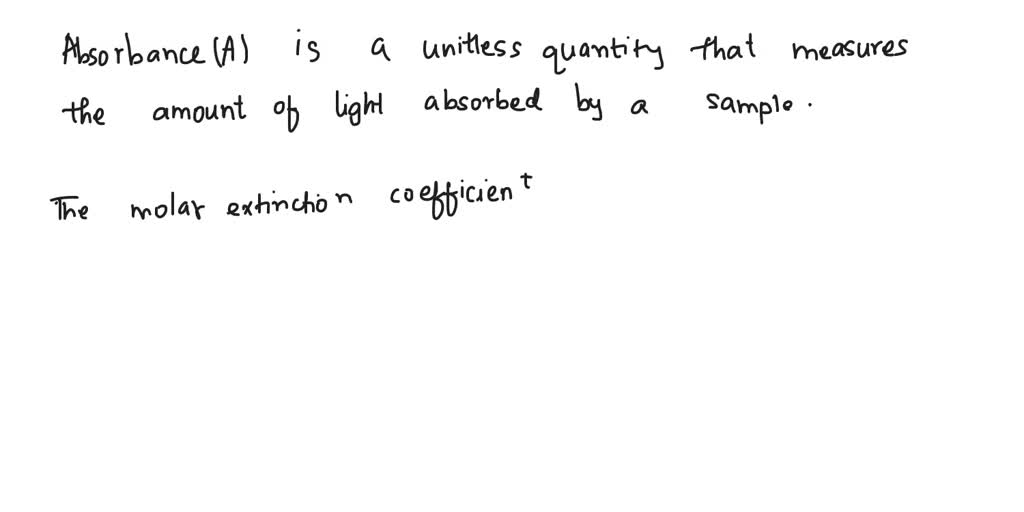 Absorbance (A) is a unitless quantity that measures
the amount of light absorbed by a sample.
The molar extinction coefficient